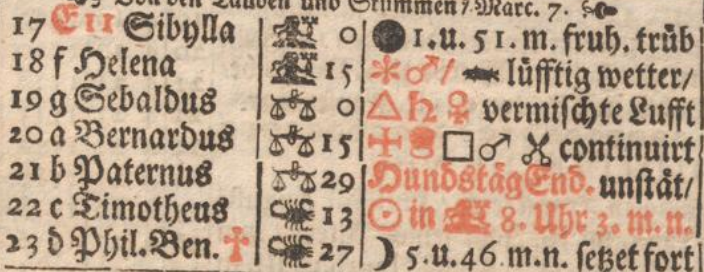 Von den Tauben und Stummen / Marc. 7.
17 E 11 Sibylla 0 1. u. 51. m. fruh. trüb
18 f Helena 15 ✶♂/ lüfftig wetter/
19 g Sebaldus ♎ 0 △♄♀ vermischte Lufft
20 a Bernardus ♎ 15 □♂ continuirt
21 b Paternus ♎ 29 Hundstäg End. unstät/
22 c Timotheus ♏ 13 ☉ in 8. Uhr 3. m. n.
23 d Phil. Ben. † ♏ 27 ☽ 5. u. 46. m. n. setzet fort